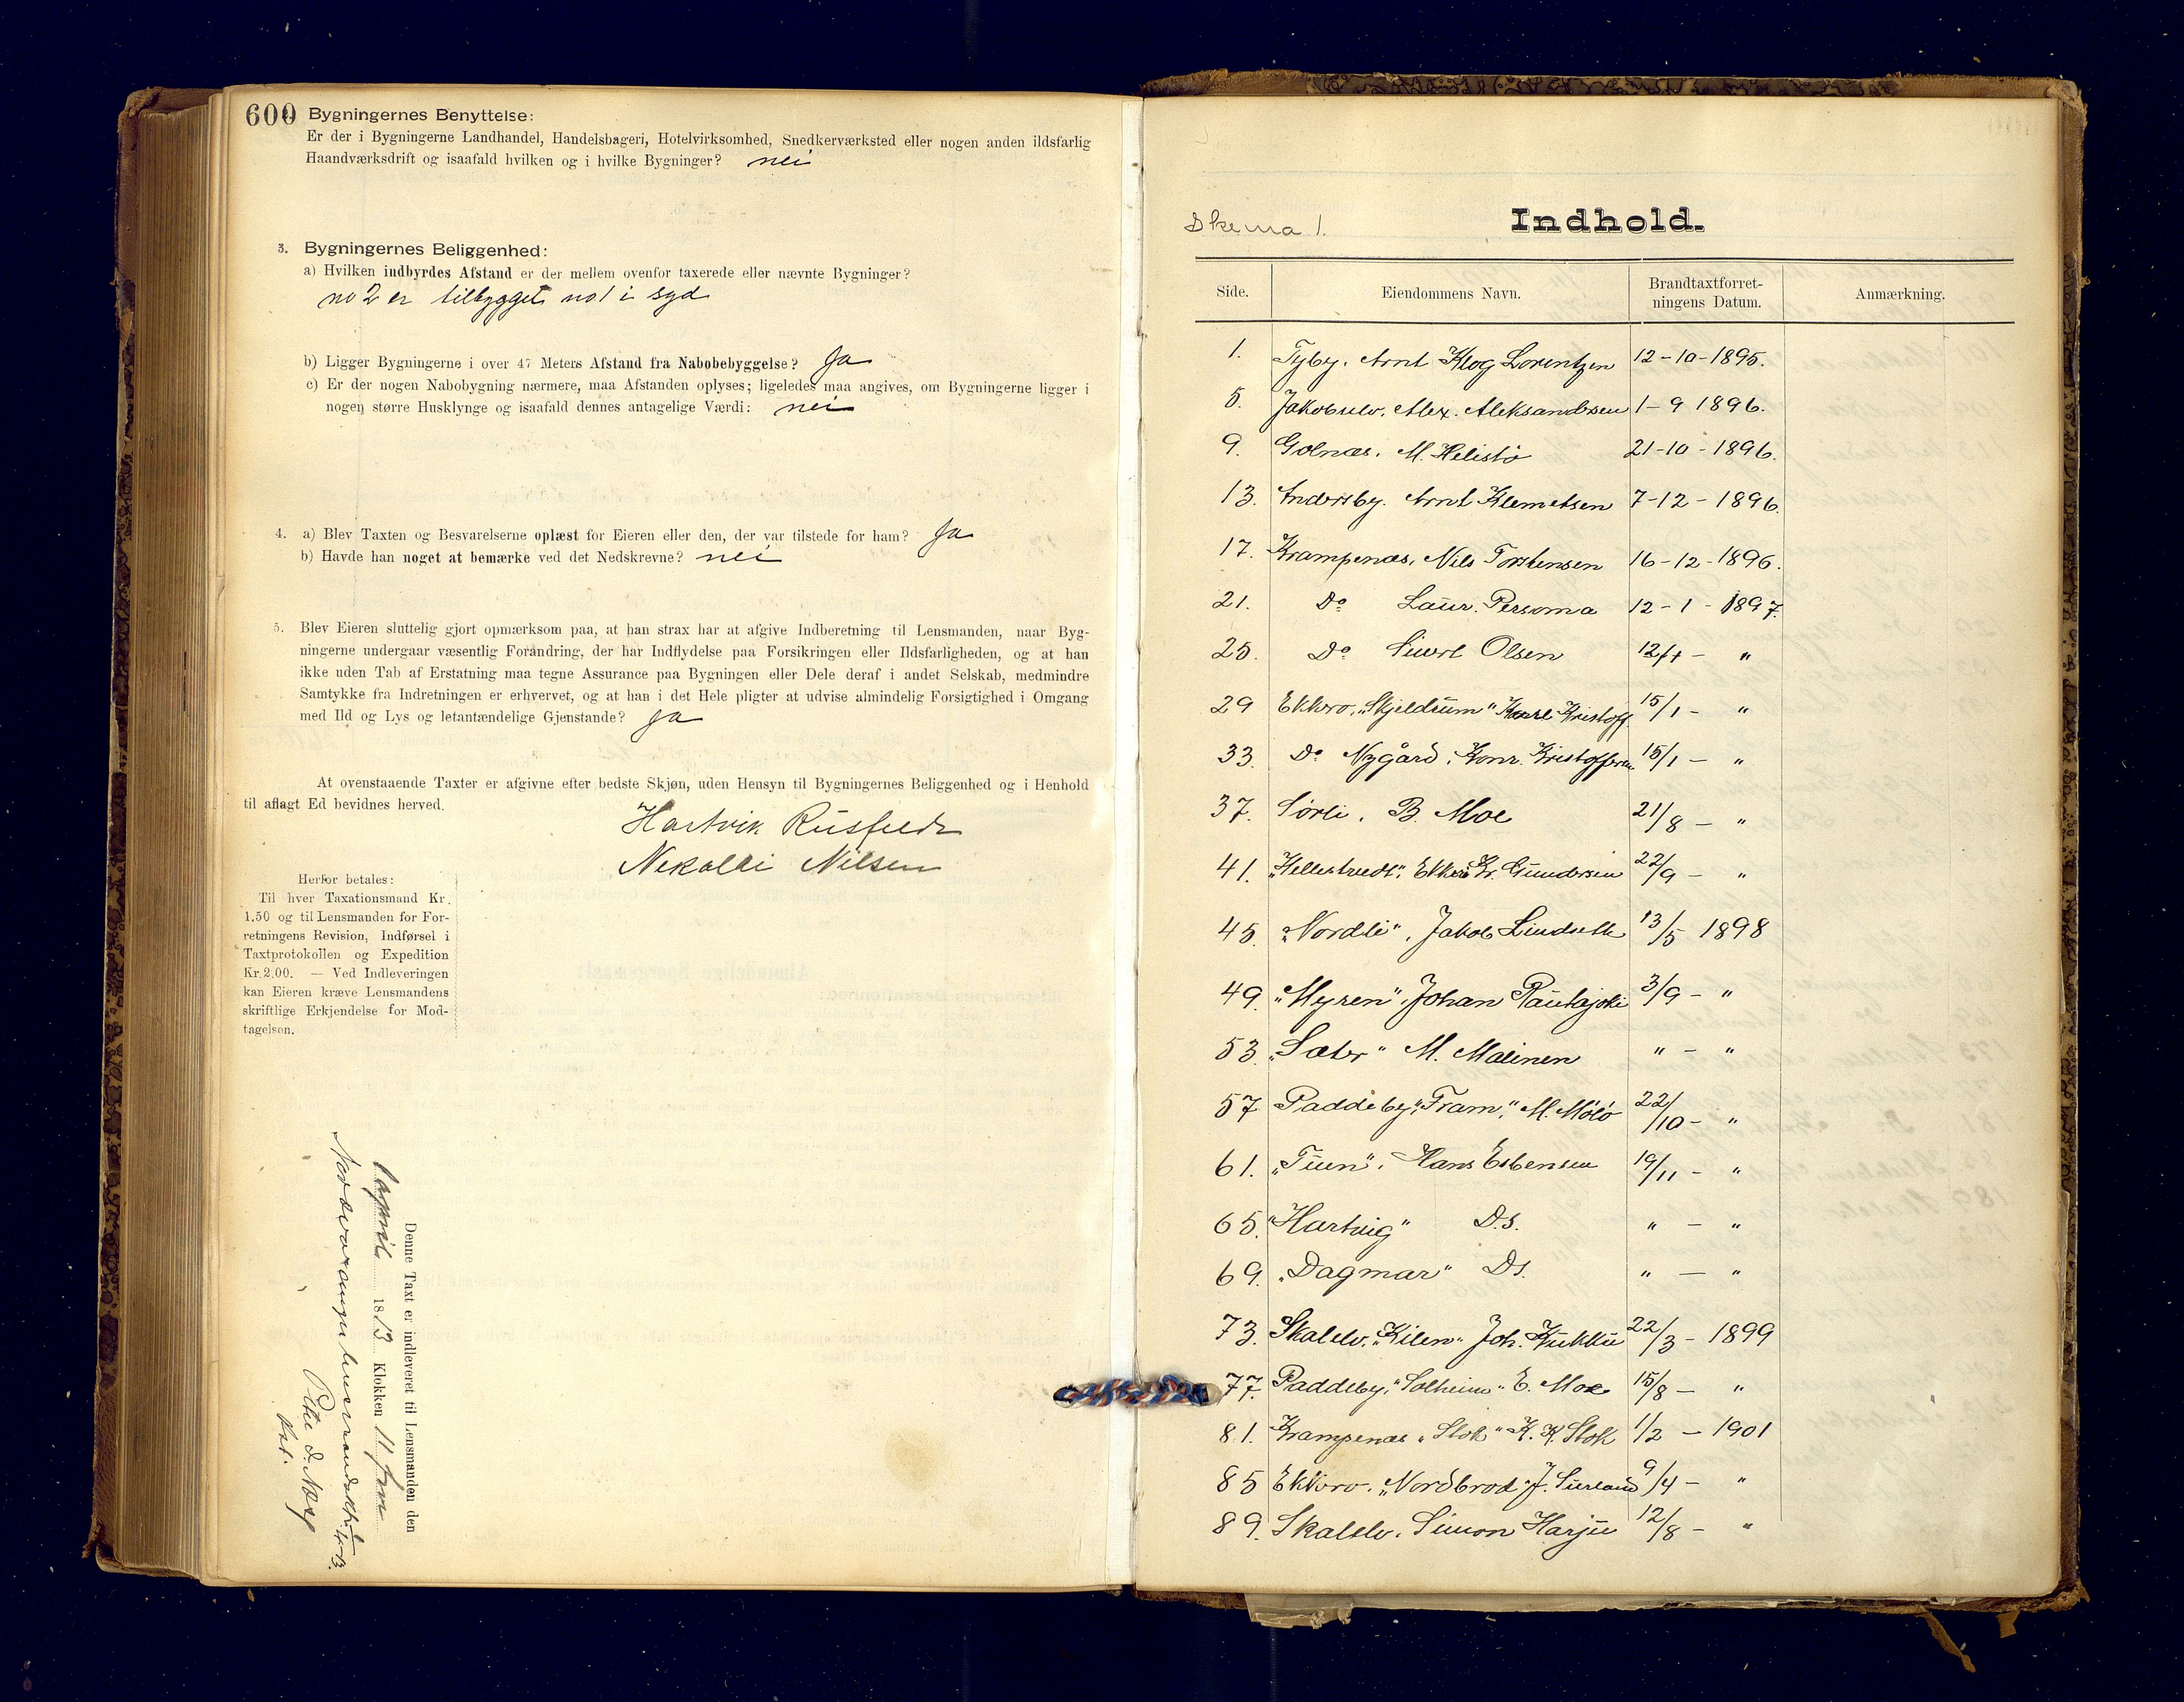 600 Bygningernes Benyttelse:
Er der i Bygningerne Landhandel, Handelsbageri, Hotelvirksomhed, Snedkerværksted eller nogen anden ildsfarlig
Haandværksdrift og isaafald hvilken og i hvilke Bygninger? nei
3. Bygningernes Beliggenhed:
a) Hvilken indbyrdes Afstand er der mellem ovenfor taxerede eller nævnte Bygninger?
no 2 er tilbygget no 1 i syd
b) Ligger Bygningerne i over 47 Meters Afstand fra Nabobebyggelse? Ja
c) Er der nogen Nabobygning nærmere, maa Afstanden oplyses; ligeledes maa angives, om Bygningerne ligger i
nogen større Husklynge og isaafald dennes antagelige Værdi: nei
4. a) Blev Taxten og Besvarelserne oplæst for Eieren eller den, der var tilstede for ham? Ja
b) Havde han noget at bemærke ved det Nedskrevne? nei
5. Blev Eieren sluttelig gjort opmærksom paa, at han strax har at afgive Indberetning til Lensmanden, naar Byg-
ningerne undergaar væsentlig Forandring, der har Indflydelse paa Forsikringen eller Ildsfarligheden, og at han
ikke uden Tab af Erstatning maa tegne Assurance paa Bygningen eller Dele deraf i andet Selskab, medmindre
Samtykke fra Indretningen er erhvervet, og at han i det Hele pligter at udvise almindelig Forsigtighed i Omgang
med Ild og Lys og letantændelige Gjenstande? ja
At ovenstaaende Taxter er afgivne efter bedste Skjøn, uden Hensyn til Bygningernes Beliggenhed og i Henhold
til aflagt Ed bevidnes herved.
Hartvik Rusfeldt
Nekolai Nilsen
Herfor betales:
Til hver Taxationsmand Kr.
1.50 og til Lensmanden for For-
retningens Revision, Indførsel i
Taxtprotokollen og Expedition
Kr. 2.00. — Ved Indleveringen
kan Eieren kræve Lensmandens
skriftlige Erkjendelse for Mod-
tagelsen.
Denne Taxt er indleveret til Lensmanden den
1 april 1813 Klokken 11 fm
Nordvaranger lensmandsktr. 1/4-13.
Skema 1.
Indhold.
Side. Eiendommens Navn. Brandtaxtforret-
ningens Datum. Anmærkning.
1. Tyby. Arnt Klog Lorentzen 12-10-1895.
5. Jakobselv. Alex. Aleksandersen 1-9 1896.
9. Golnæs. M. Helistø 21-10-1896.
13. Andersby. Arnt Klemetsen 7-12-1896.
17. Krampenæs. Nils Torstensen 16-12-1896.
21. Do Laur. Persoma 12-1-1897.
25. Do Sivert Olsen 12/1 - "
29 Ekkerø. "Skjeldrum" Karl Kristoff. 15/1 - "
33. Do Nygård. Konr. Kristoffersen 15/1 - "
37. Sørli. B. Moe 21/8 - "
41. "Hellestredt". Ekkerø Kr. Gundersen 22/9 - "
45. "Nordli". Jakob Lindseth 13/5 1898
49. "Myren". Johan Rautajoki 3/9 - "
53. "Sæter" M. Malinen " - "
57 Paddeby "Fram." M. Mölö 22/10 - "
61. "Tuen". Hans Esbensen 19/11 - "
65. "Hartvig" D.s. " - "
69. "Dagmar" Ds. " - "
73. Skalelv. "Kilen" Joh. Kukku 22/3 - 1899
77. Paddeby. "Solheim" E. Moe 15/8 - "
81. Krampenæs "Stok" K. K. Stok 1/2 - 1901
85 Ekkerø. "Nordbrod" J. Surland 9/4 - "
89. Skalelv. Simon Harju 12/8 - "